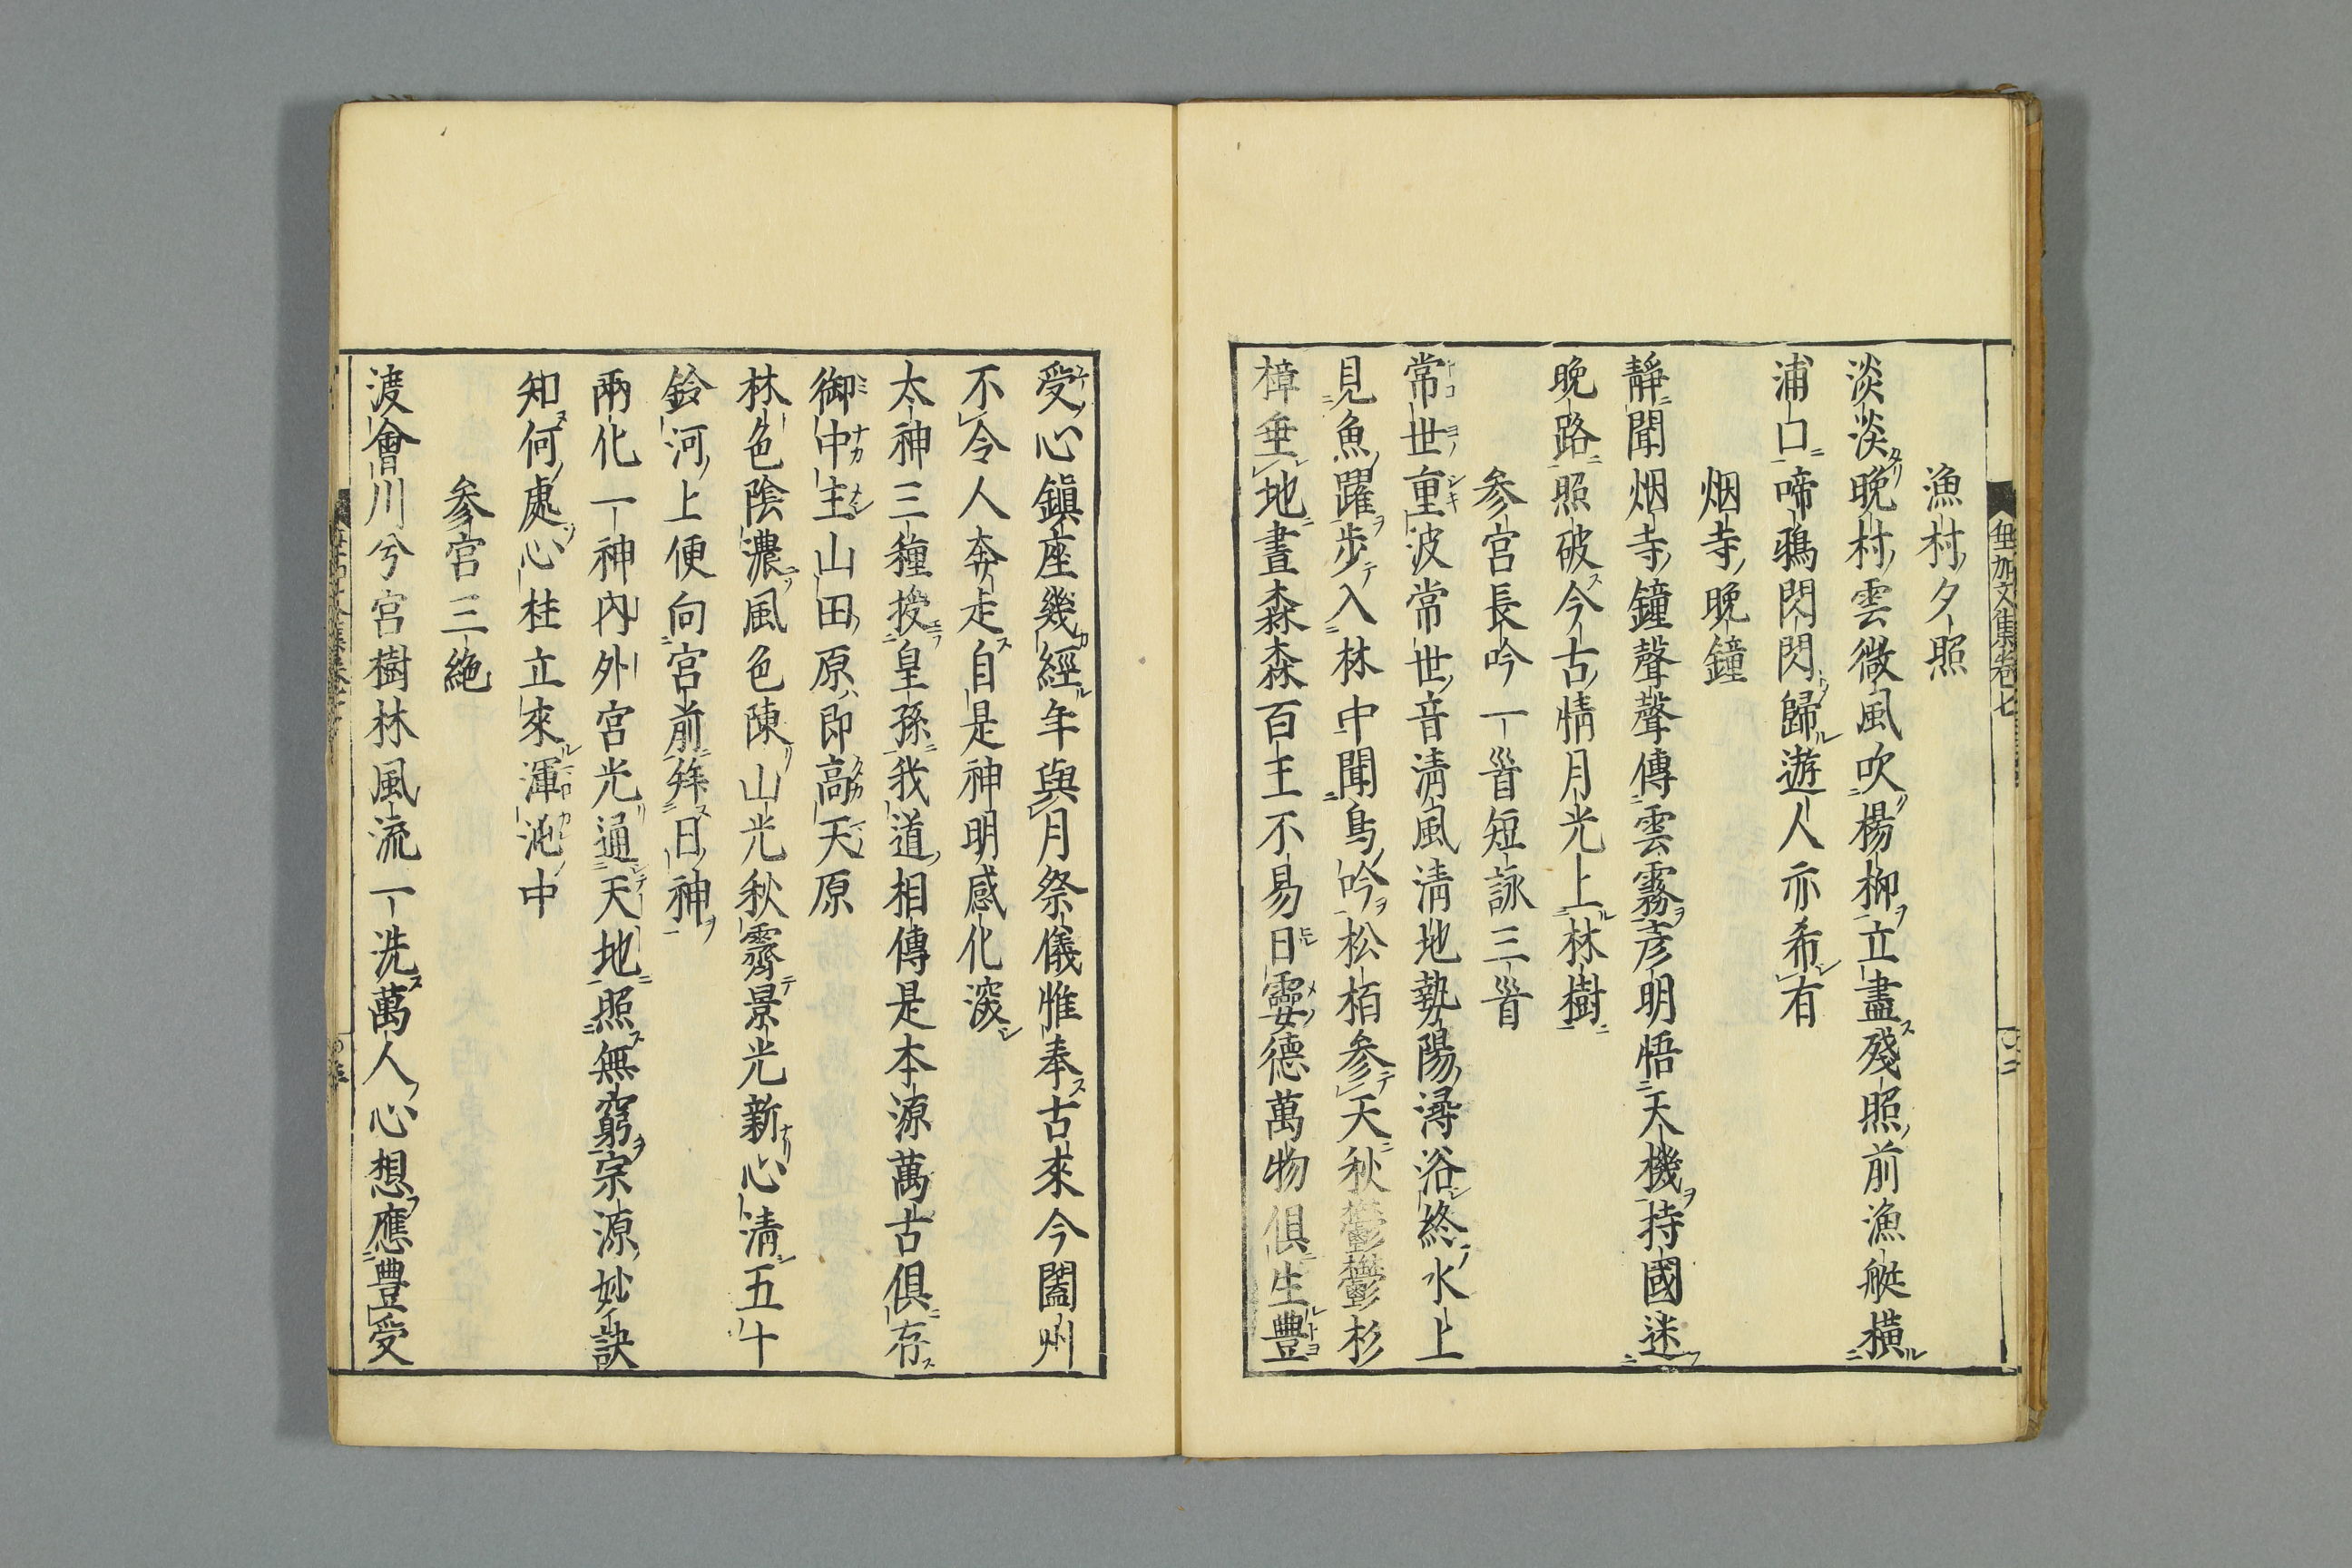 垂加文集卷七
漁村夕照
淡淡晩村雲微風吹楊柳立盡殘照前漁艇横
浦口啼鴉閃閃歸遊人亦希有
烟寺晩鐘
靜聞烟寺鐘聲聲傳雲霧彦明悟天機持國迷
晩路照破今古情月光上林樹
参宮長吟一首短詠三首
常世重波常世音淸風淸地勢陽潯浴終水上
見魚躍歩入林中聞鳥吟松栢参天秋鬱鬱杉
樟垂地晝森森百王不易日孁德萬物俱生豐
受心鎭座幾經年與月祭儀惟奉古來今闔州
不令人奔走自是神明感化深
太神三種授皇孫我道相傳是本源萬古俱存
御中主山田原即高天原
林色陰濃風色陳山光秋霽景光新心淸五十
鈴河上便向宮前拜日神
兩化一神内外宮光通天地照無窮宗源妙訣
知何處心柱立來渾沌中
参宮三絶
渡會川兮宮樹林風流一洗萬人心想應豊受